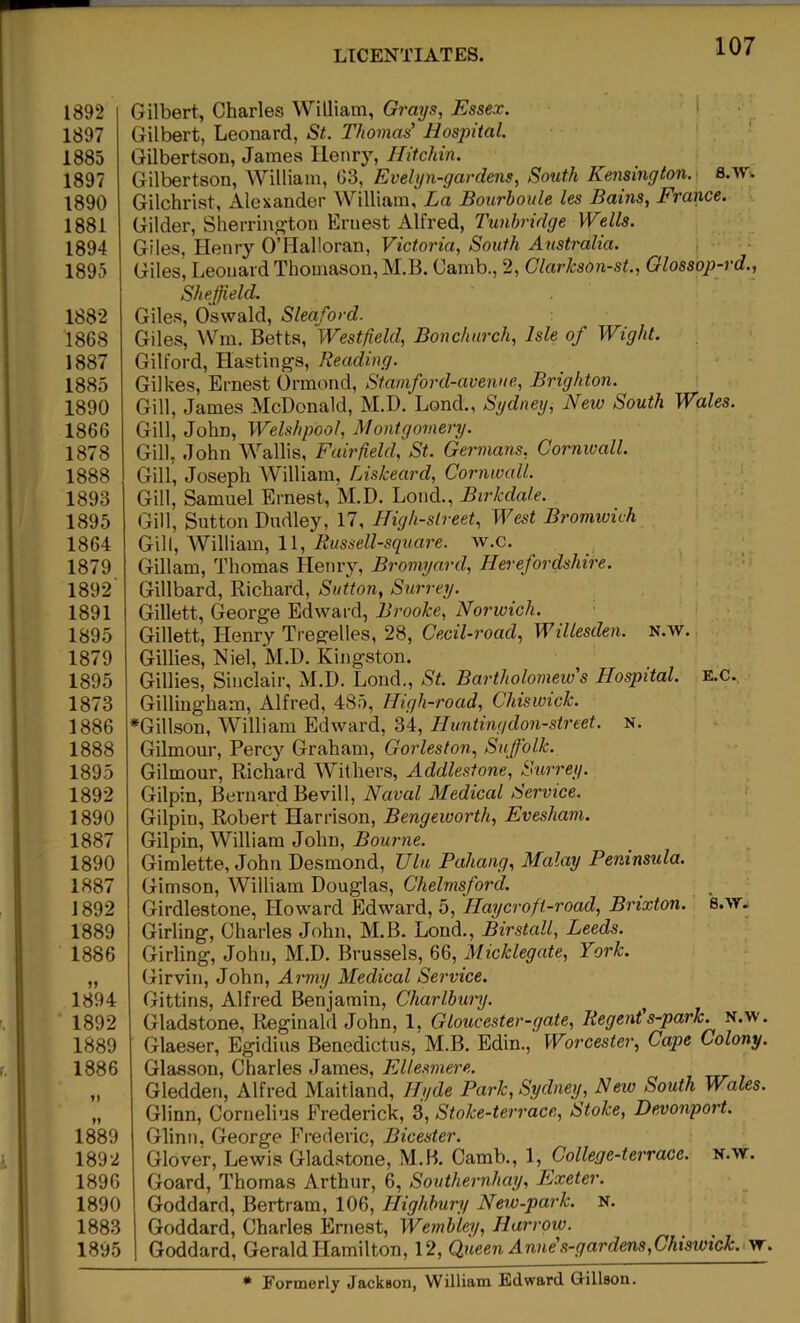 LICENTIATES.
107
1892 Gilbert, Charles William, Grays, Essex.
1897 Gilbert, Leonard, St. Thomas' Hospital.
1885 Gilbertson, James Henry, Hitchin.
1897 Gilbertson, William, 63, Evelyn-gardens, South Kensington. S.W.
1890 Gilchrist, Alexander William, La Bourboule les Bains, France.
1881 Gilder, Sherrington Ernest Alfred, Tunbridge Wells.
1894 Giles, Henry O'Halloran, Victoria, South Australia.
1895 Giles, Leonard Thomason, M.B. Camb., 2, Clarkson-st., Glossop-rd.,
Sheffield.
1882 Giles, Oswald, Sleaford.
1868 Giles, Wm. Betts, Westfield, Bonchurch, Isle of Wight.
1887 Gilford, Hastings, Reading.
1885 Gilkes, Ernest Ormond, Stamford-avenue, Brighton.
1890 Gill, James McDonald, M.D. Lond., Sydney, New South Wales.
1866 Gill, John, Welshpool, Montgomery.
1878 Gill, John Wallis, Fairfield, St. Germans, Cornwall.
1888 Gill, Joseph William, Liskeard, Cornwall.
1893 Gill, Samuel Ernest, M.D. Lond., Birkdale.
1895 Gill, Sutton Dudley, 17, High-street, West Bromwich
1864 Gill, William, 11, Russell-square. W.C.
1879 Gillam, Thomas Henry, Bromyard, Herefordshire.
1892 Gillbard, Richard, Sutton, Surrey.
1891 Gillett, George Edward, Brooke, Norwich.
1895 Gillett, Henry Tregelles, 28, Cecil-road, Willesden. N.W.
1879 Gillies, Niel, M.D. Kingston.
1895 Gillies, Sinclair, M.D. Lond., St. Bartholomew's Hospital. E.C.
1873 Gillingham, Alfred, 485, High-road, Chiswick.
1886 *Gillson, William Edward, 34, Huntingdon-street. N.
1888 Gilmour, Percy Graham, Gorleston, Suffolk.
1895 Gilmour, Richard Withers, Addlestone, Surrey.
1892 Gilpin, Bernard Bevill, Naval Medical Service.
1890 Gilpin, Robert Harrison, Bengeworth, Evesham.
1887 Gilpin, William John, Bourne.
1890 Gimlette, John Desmond, Ulu Pahang, Malay Peninsula.
1887 Gimson, William Douglas, Chelmsford.
1892 Girdlestone, Howard Edward, 5, Haycroft-road, Brixton. S.W.
1889 Girling, Charles John, M.B. Lond., Birstall, Leeds.
1886 Girling, John, M.D. Brussels, 66, Micklegate, York.
„ Girvin, John, Army Medical Service.
1894 Gittins, Alfred Benjamin, Charlbury.
1892 Gladstone, Reginald John, 1, Gloucester-gate, Regent's-park. N.W.
1889 Glaeser, Egidius Benedictus, M.B. Edin., Worcester, Cape Colony.
1886 Glasson, Charles James, Ellesmere.
„ Gledden, Alfred Maitland, Hyde Park, Sydney, New South Wales.
„ Glinn, Cornelius Frederick, 3, Stoke-terrace, Stoke, Devonport.
1889 Glinn, George Frederic, Bicester.
1892 Glover, Lewis Gladstone, M.B. Camb., 1, College-terrace. N.W.
1896 Goard, Thomas Arthur, 6, Southernhay, Exeter.
1890 Goddard, Bertram, 106, Highbury New-park. N.
1883 Goddard, Charles Ernest, Wembley, Harrow.
1895 Goddard, Gerald Hamilton, 12, Queen Anne's-gardens, Chiswick. W.
* Formerly Jackson, William Edward Gillson.